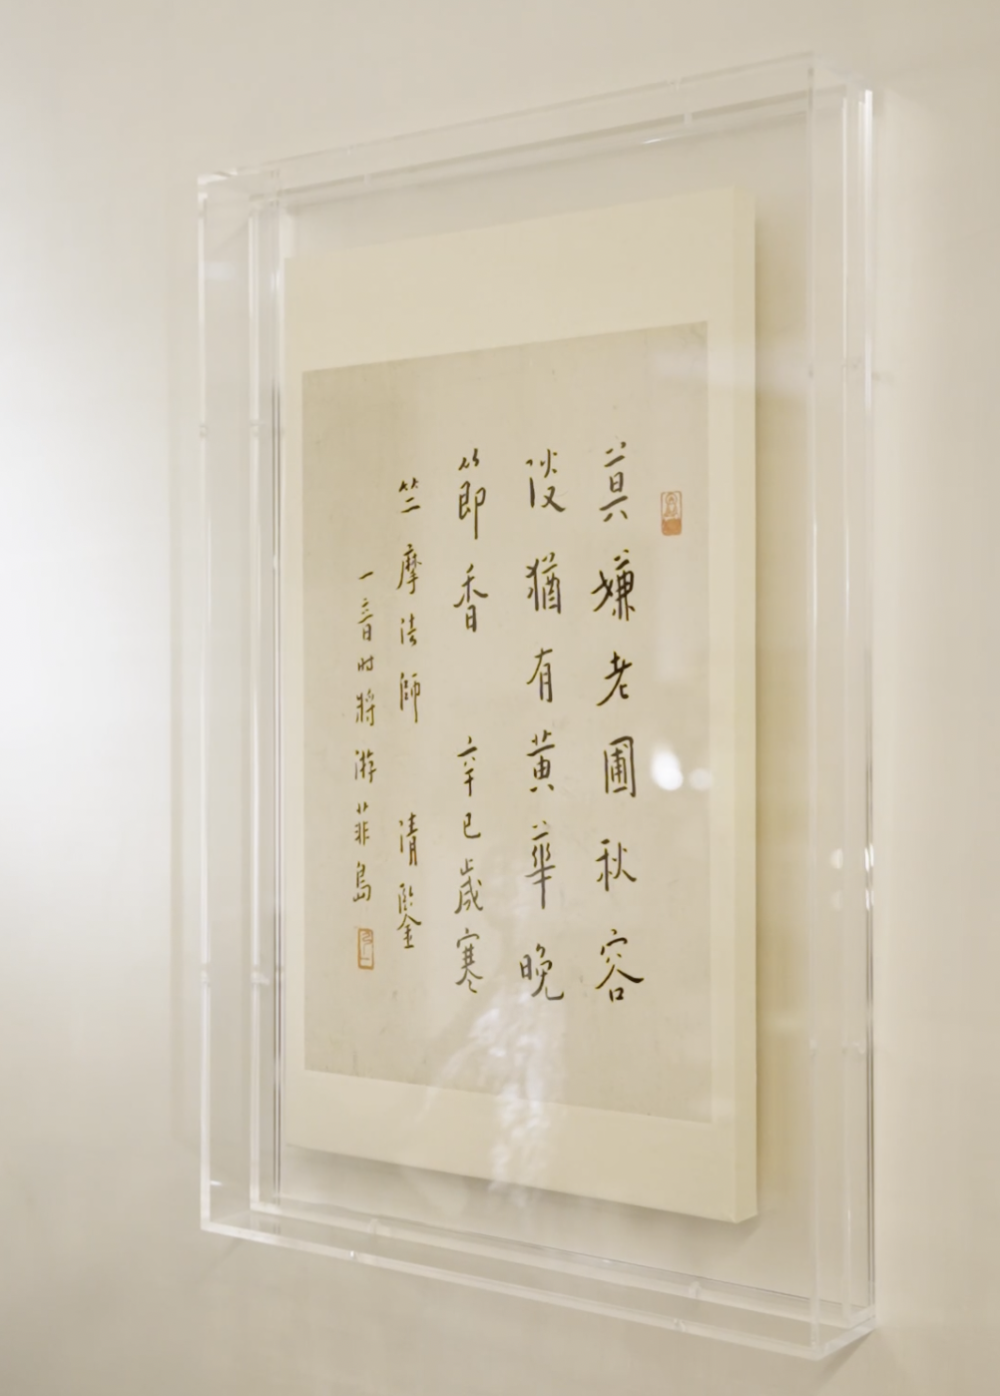 莫嫌老圃秋容
淡猶有黃華晚
節香 辛巳歲寒
竺摩法師 清鑒
一音时將游菲島